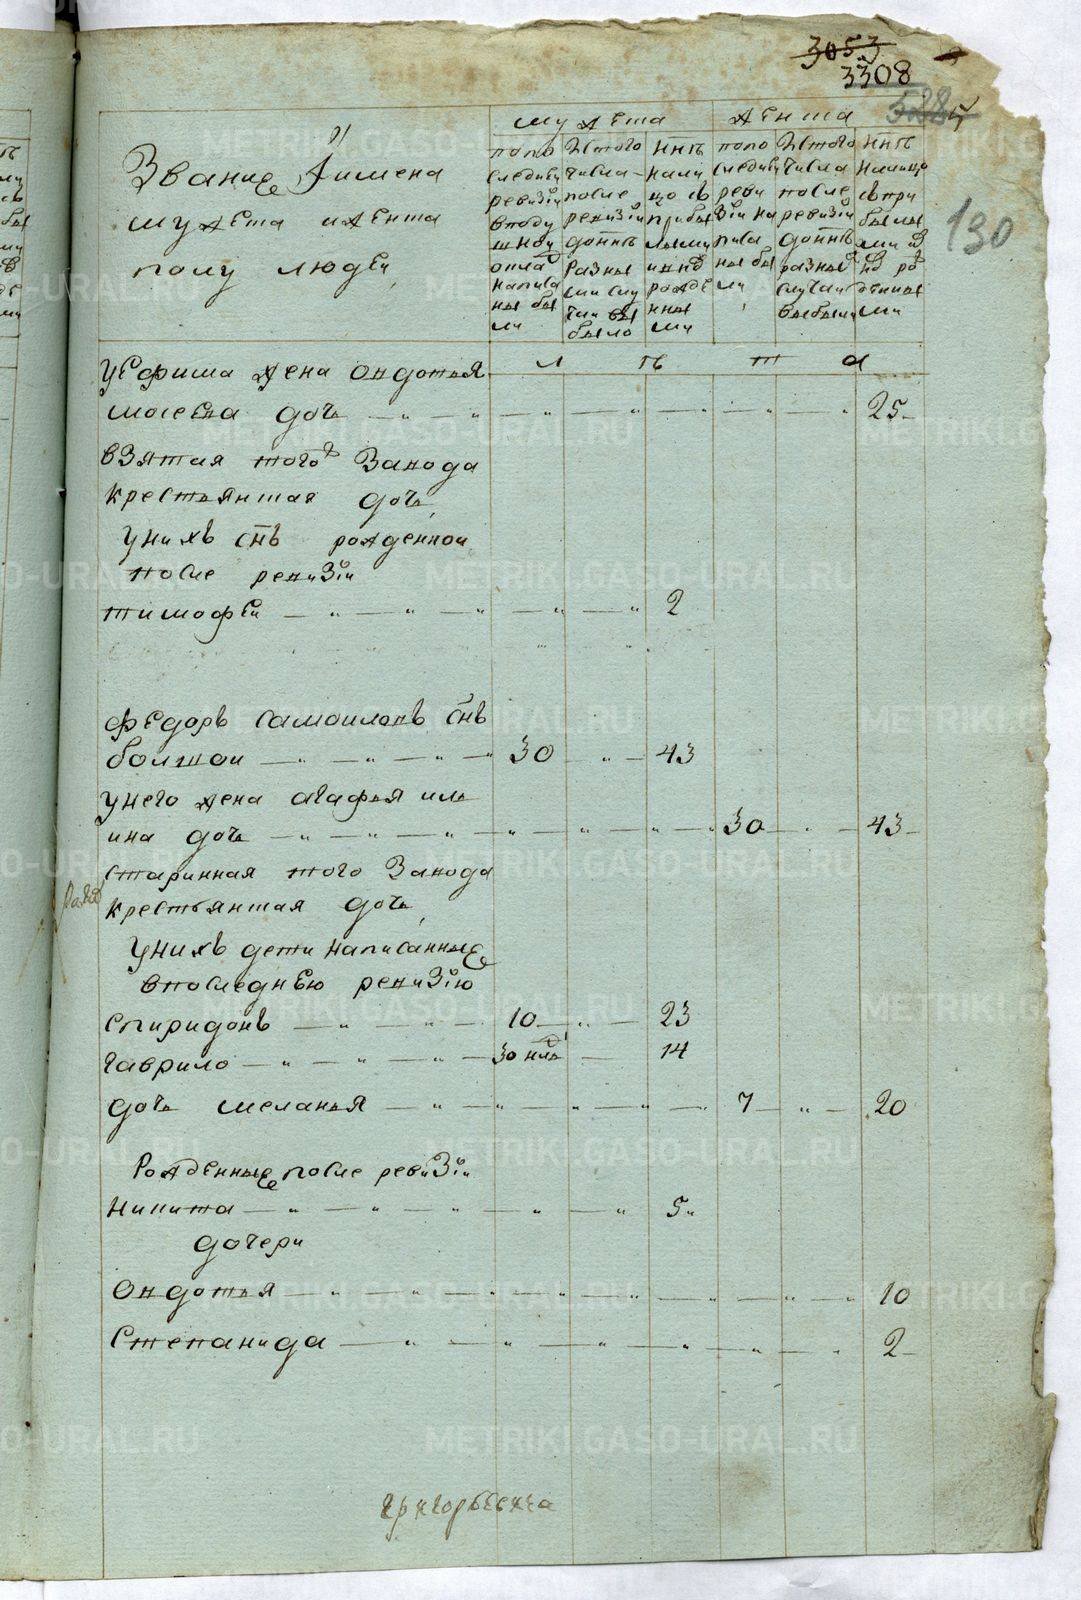 3053
3308
528
130
мужеска
женска
Званіе и имена
мужеска иженска
полу людеи
попо следнеи ревизіи вподу шнои окладъ написа ны бы ли
Изтого числа после ревизіи допнѣ разны ми слу чаи вы было
Ннѣ нали цо съ прибы лыми ивнв рожде нны ми
попо следнеи реви зіи на писа ны бы ли
Изтого числа после ревизіи допнѣ разны случаи выбыли
Ннѣ налицо съпри былы ми и внв ро жденны ми
л ѣ т а
уефима жена овдотья
мосеева дочь 25
взятая того завода
крестьянская дочь
унихъ снъ рожденнои
после ревизіи
тимофеи 2
федоръ самоиловъ снъ
болшои 30 43
унего жена агафья иль
ина дочь 30 43
старинная того завода
крестьянская дочь
унихъ дети написанные
впоследнею ревизію
спиридонъ 10 23
гаврило 30 нлв 14
дочь меланья 7 20
Рожденные после ревизіи
никита 5
дочери
овдотья 10
степанида 2
григорьевича
METRIKI.GASO-URAL.RU